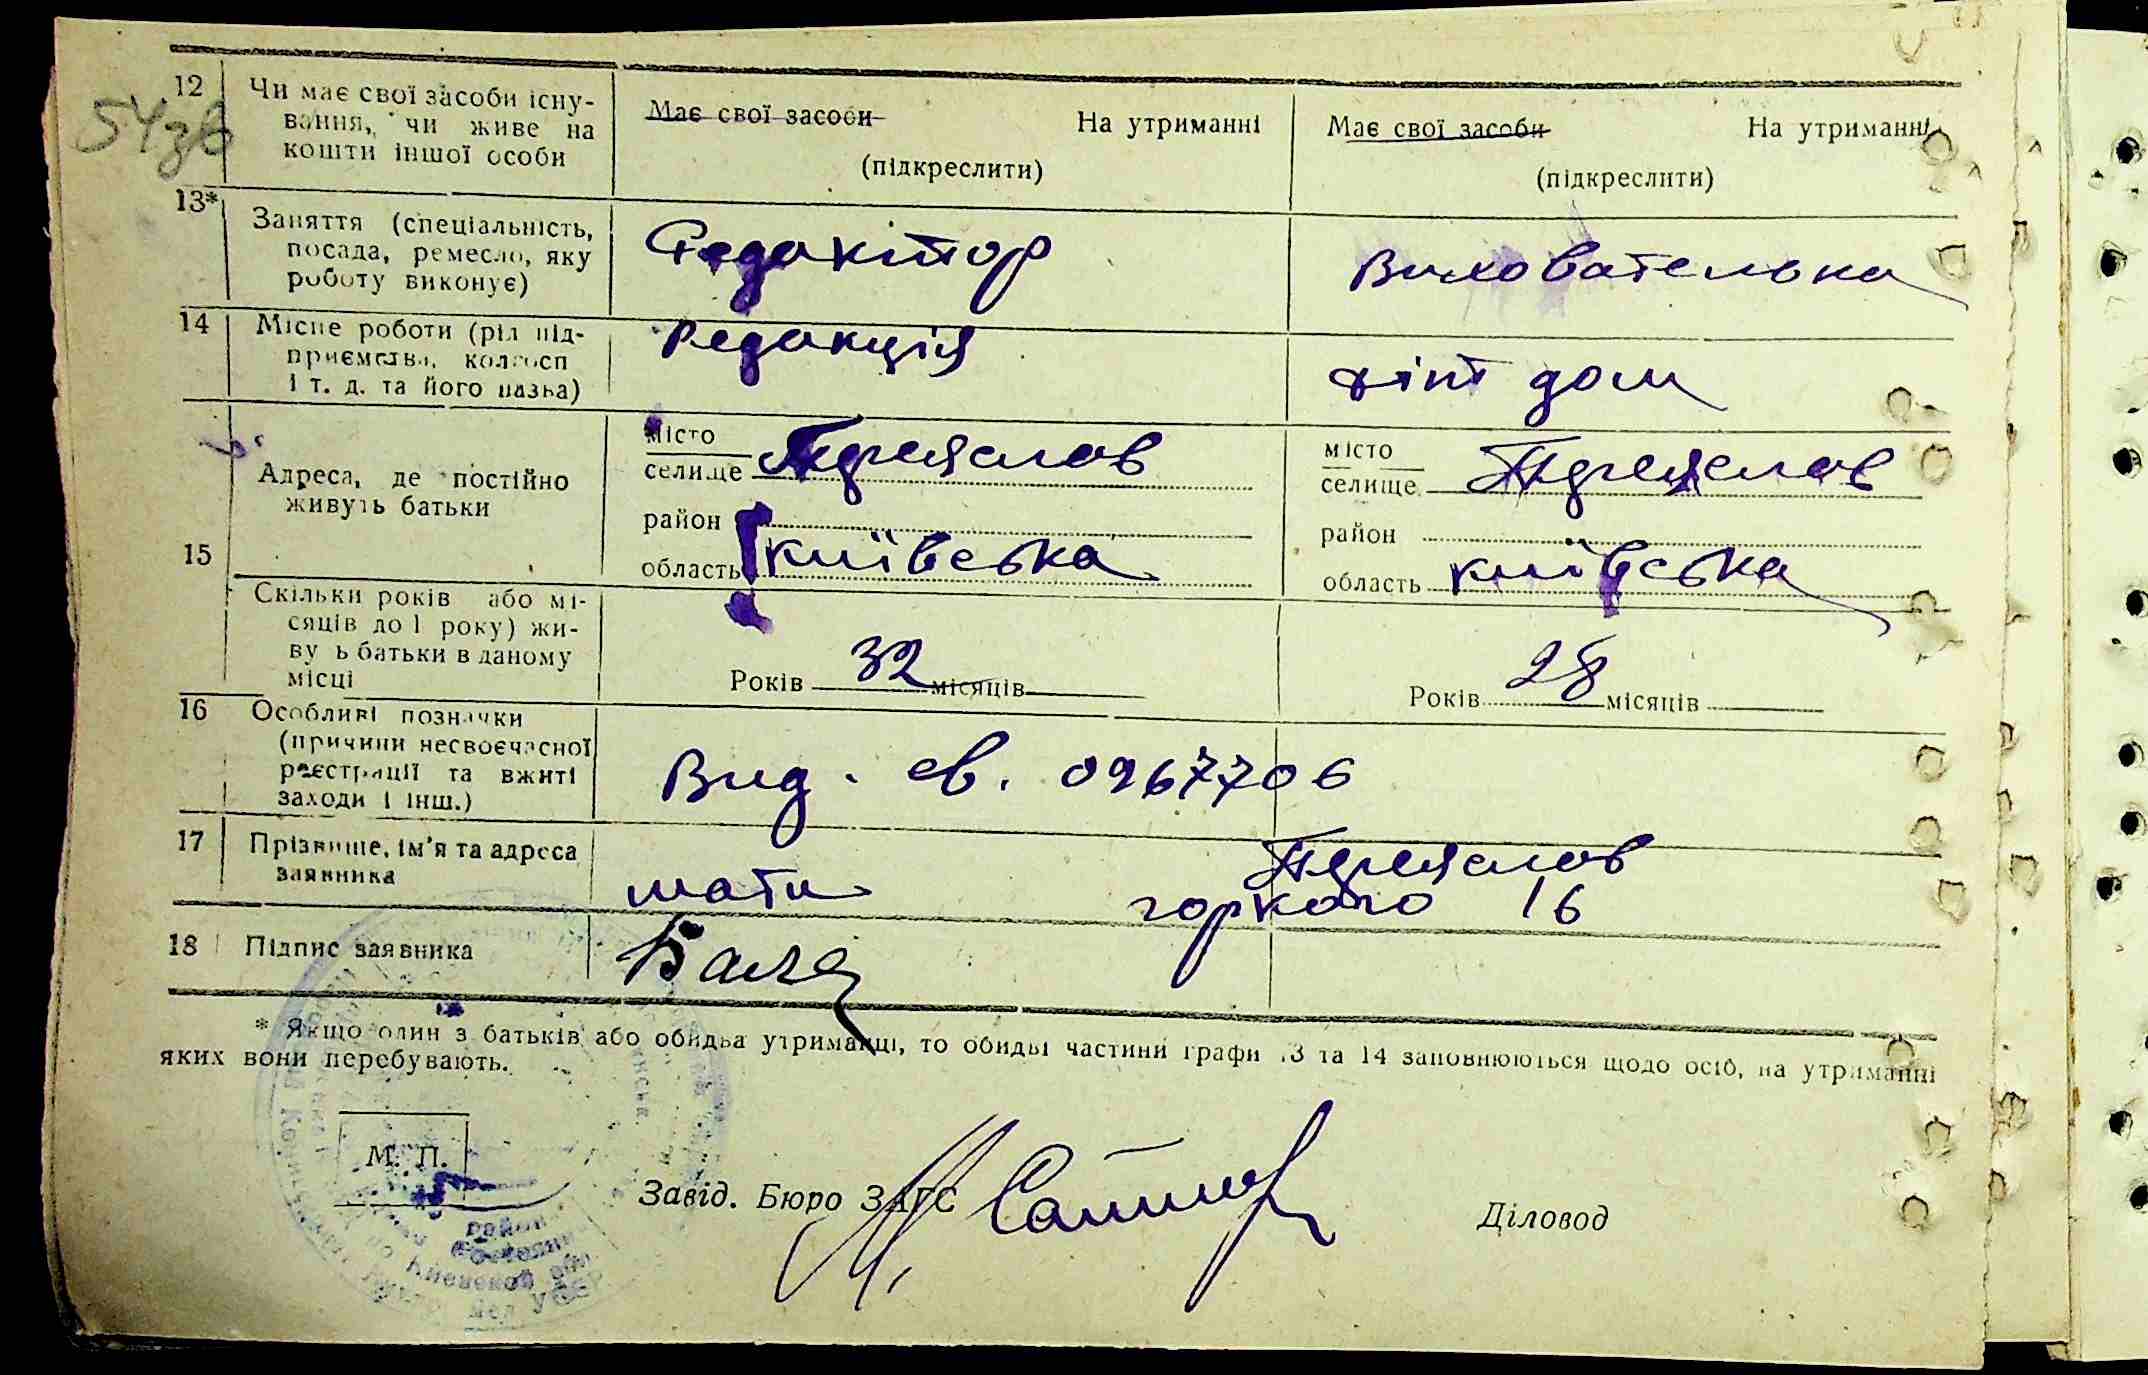 54зв
12 Чи має свої засоби існу-
вання, чи живе на
кошти іншої особи
Має свої засоби На утриманні
(підкреслити)
Має свої засоби На утриманні
(підкреслити)
13* Заняття (спеціальність,
посада, ремесло, яку
роботу виконує)
Редактор
Вихователька
14 Місце роботи (рід під-
приємства, колгосп
і т. д. та його назва)
Редакція
діт дом
15 Адреса, де постійно
живуть батьки
місто
селище Переяслов
район
область київська
місто
селище Переяслов
район
область київська
Скільки років або мі-
сяців до 1 року) жи-
ву ь батьки в даному
місці
Років 32 місяців
Років 28 місяців
16 Особливі позначки
(причини несвоєчасної
реєстрації та вжиті
заходи і інш.)
Вид. св. 0967706
17 Прізвище, ім'я та адреса
заявника
мати
Переяслов
горкого 16
18 Підпис заявника
* Якщо один з батьків або обидва утриманці, то обидві частини графи 13 та 14 заповнюються щодо осіб, на утриманні
яких вони перебувають.
М. П.
Завід. Бюро ЗАГС
Діловод